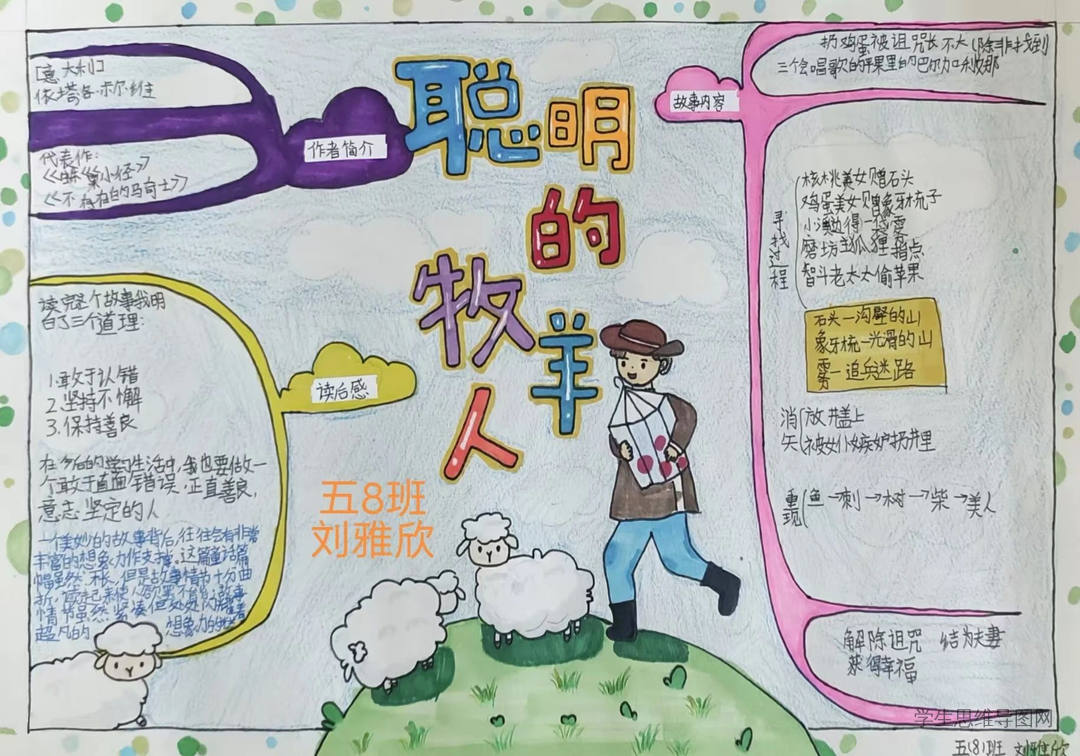 聪明
的
牧羊
人
作者简介
[意大利]
依塔洛·卡尔维主
代表作:
《蛛巢小径》
《不存在的马奇士》
读后感
读完整个故事我明
白了三个道理:
1.敢于认错
2.坚持不懈
3.保持善良
在今后的学习生活中,我也要做一
个敢于直面错误,正直善良,
意志坚定的人
一个美妙的故事背后,往往会有非常
丰富的想象力作支撑。这篇童话篇
幅虽然不长,但是故事情节十分曲
折,读起来使人欲罢不能,故事
情节虽然紧凑但处处闪耀着
超凡的
想象力的
五8班
刘雅欣
故事内容
扔鸡蛋被诅咒长不大(除非找到
三个会唱歌的苹果里的巴尔加利娜那
寻找过程
核桃美女赠石头
鸡蛋美女赠象牙梳子
小 边得一袋雾
磨坊主狐狸 指点
智斗老太太偷苹果
石头一沟壁的山
象牙梳一光滑的山
雾一追兵迷路
消失
放井盖上
被女仆嫉妒扔井里
重现
鱼→刺→树→柴→美人
解除诅咒 结为夫妻
获得幸福
学生思维导图网
五(8)班 刘雅欣